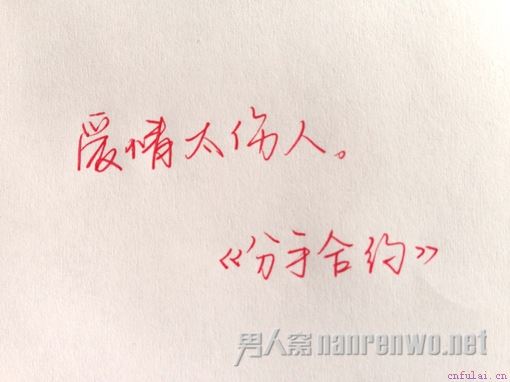 爱情太伤人。
《分手合约》
男人窝nanrenwo.net
cnfulai.cn